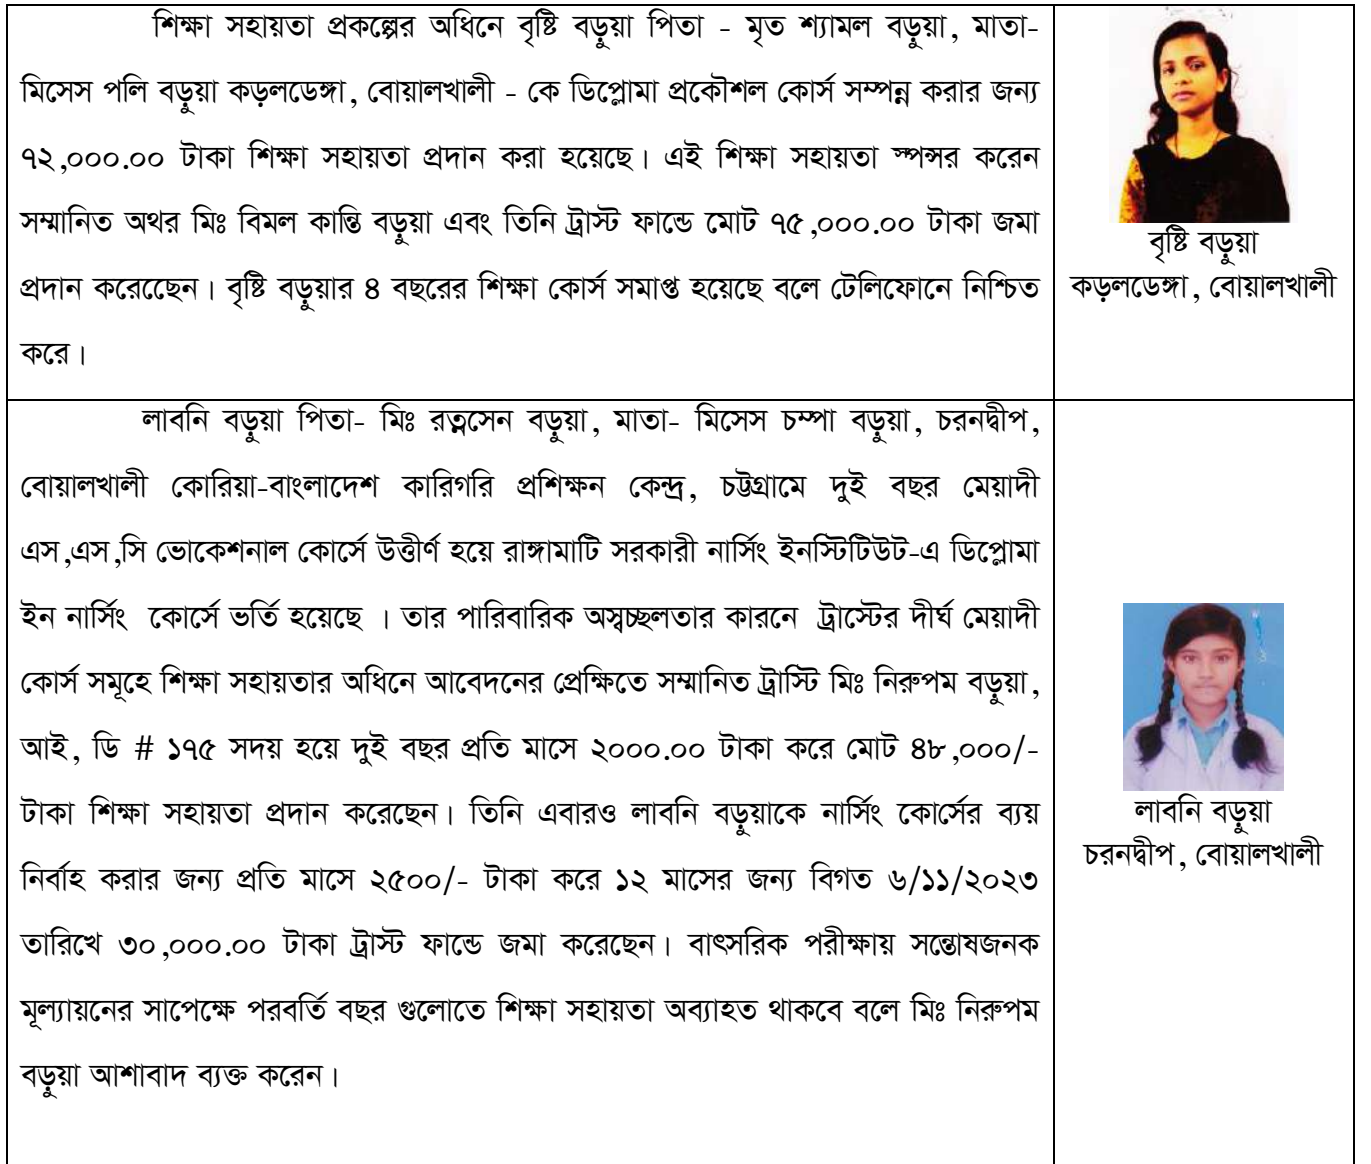 শিক্ষা সহায়তা প্রকল্পের অধিনে বৃষ্টি বড়ুয়া পিতা - মৃত শ্যামল বড়ুয়া, মাতা-
মিসেস পলি বড়ুয়া কড়লডেঙ্গা, বোয়ালখালী - কে ডিপ্লোমা প্রকৌশল কোর্স সম্পন্ন করার জন্য
৭২,০০০.০০ টাকা শিক্ষা সহায়তা প্রদান করা হয়েছে। এই শিক্ষা সহায়তা স্পন্সর করেন
সম্মানিত অথর মিঃ বিমল কান্তি বড়ুয়া এবং তিনি ট্রাস্ট ফান্ডে মোট ৭৫,০০০.০০ টাকা জমা
প্রদান করেছেেন। বৃষ্টি বড়ুয়ার ৪ বছরের শিক্ষা কোর্স সমাপ্ত হয়েছে বলে টেলিফোনে নিশ্চিত
করে।
বৃষ্টি বড়ুয়া
কড়লডেঙ্গা, বোয়ালখালী
লাবনি বড়ুয়া পিতা- মিঃ রত্নসেন বড়ুয়া, মাতা- মিসেস চম্পা বড়ুয়া, চরনদ্বীপ,
বোয়ালখালী কোরিয়া-বাংলাদেশ কারিগরি প্রশিক্ষন কেন্দ্র, চট্টগ্রামে দুই বছর মেয়াদী
এস,এস,সি ভোকেশনাল কোর্সে উত্তীর্ণ হয়ে রাঙ্গামাটি সরকারী নার্সিং ইনস্টিটিউট-এ ডিপ্লোমা
ইন নার্সিং কোর্সে ভর্তি হয়েছে । তার পারিবারিক অস্বচ্ছলতার কারনে ট্রাস্টের দীর্ঘ মেয়াদী
কোর্স সমূহে শিক্ষা সহায়তার অধিনে আবেদনের প্রেক্ষিতে সম্মানিত ট্রাস্টি মিঃ নিরুপম বড়ুয়া,
আই, ডি # ১৭৫ সদয় হয়ে দুই বছর প্রতি মাসে ২০০০.০০ টাকা করে মোট ৪৮,০০০/-
টাকা শিক্ষা সহায়তা প্রদান করেছেন। তিনি এবারও লাবনি বড়ুয়াকে নার্সিং কোর্সের ব্যয়
নির্বাহ করার জন্য প্রতি মাসে ২৫০০/- টাকা করে ১২ মাসের জন্য বিগত ৬/১১/২০২৩
তারিখে ৩০,০০০.০০ টাকা ট্রাস্ট ফান্ডে জমা করেছেন। বাৎসরিক পরীক্ষায় সন্তোষজনক
মূল্যায়নের সাপেক্ষে পরবর্তি বছর গুলোতে শিক্ষা সহায়তা অব্যাহত থাকবে বলে মিঃ নিরুপম
বড়ুয়া আশাবাদ ব্যক্ত করেন।
লাবনি বড়ুয়া
চরনদ্বীপ, বোয়ালখালী